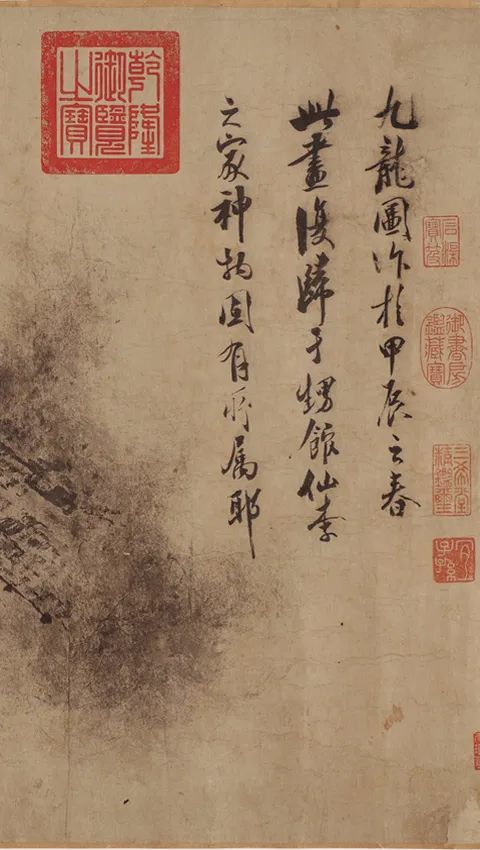 石渠寶笈
御書房鑑藏寶
三希堂精鑑璽
宜子孫
九龍圖作於甲辰之春
此畫復歸于甥館仙李
之家神物固有所属耶
乾隆御覽之寶